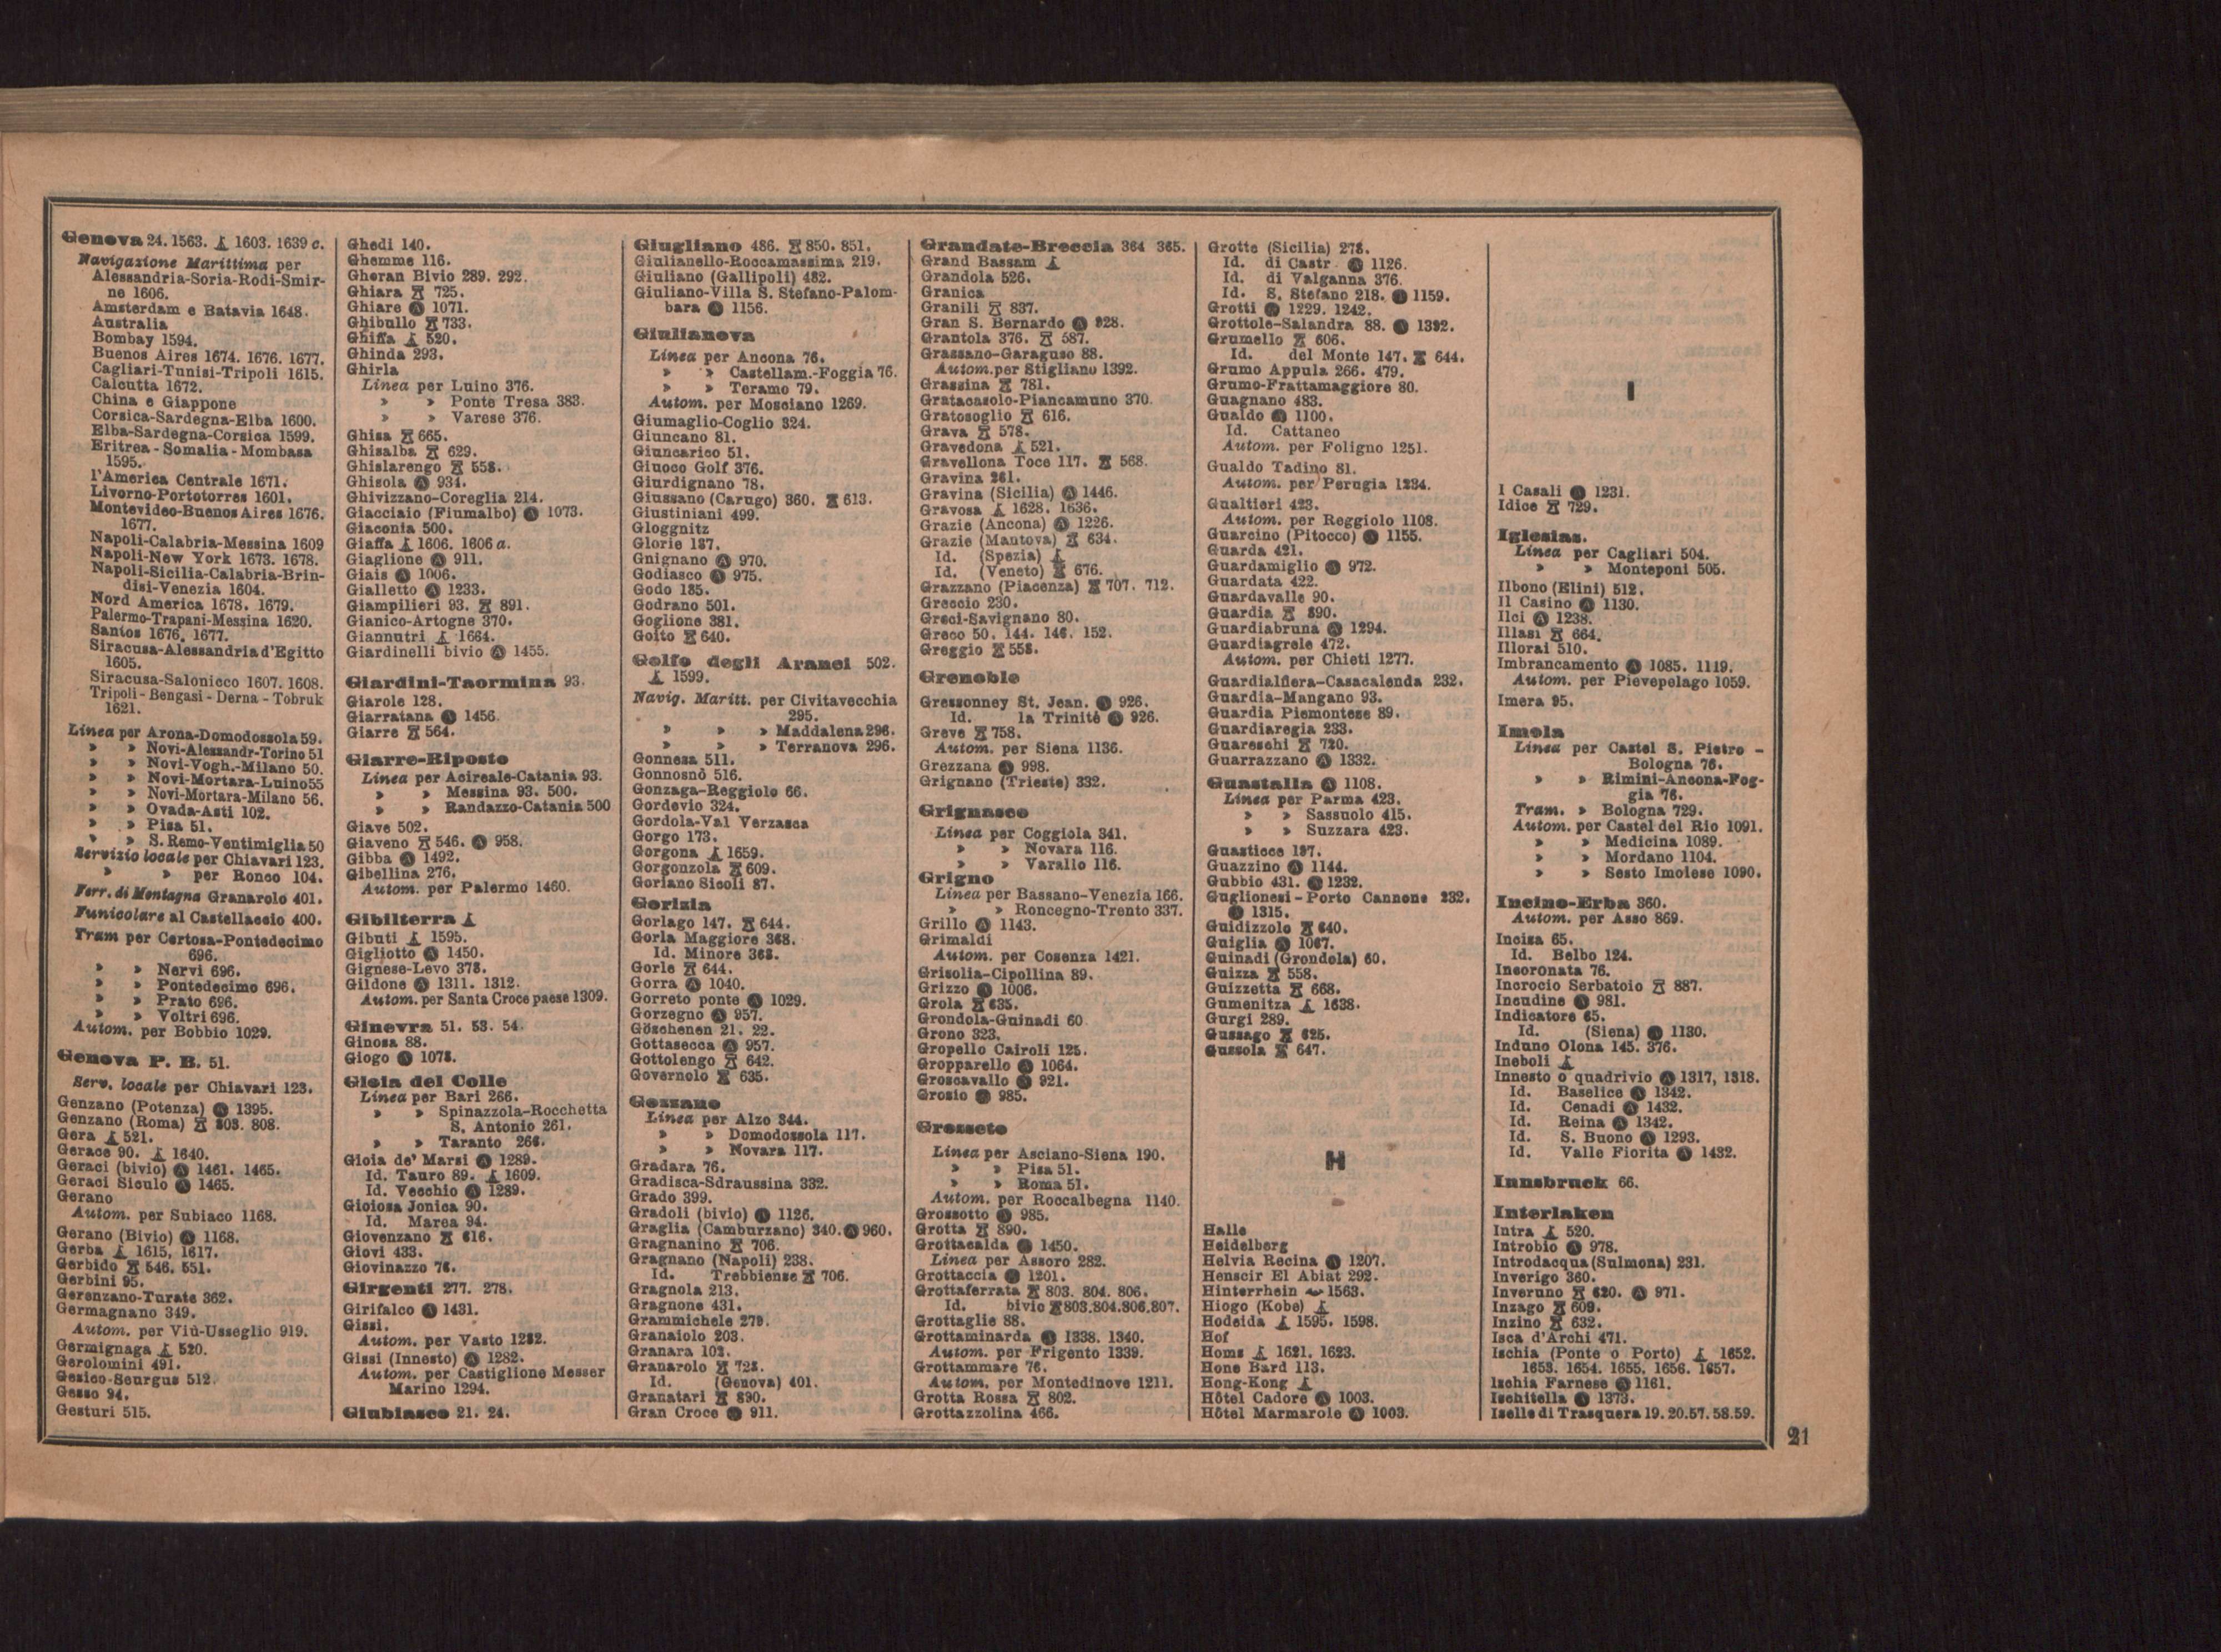 Genova 24. 1563. 1603. 1639 c.
Navigazione Marittima per
Alessandria-Soria-Rodi-Smir-
ne 1606.
Amsterdam e Batavia 1648.
Australia
Bombay 1594.
Buenos Aires 1674. 1676. 1677.
Cagliari-Tunisi-Tripoli 1615.
Calcutta 1672.
China e Giappone
Corsica-Sardegna-Elba 1600.
Elba-Sardegna-Corsica 1599.
Eritrea - Somalia - Mombasa
1595.
l'America Centrale 1671.
Livorno-Portotorres 1601.
Montevideo-Buenos Aires 1676.
1677.
Napoli-Calabria-Messina 1609
Napoli-New York 1673. 1678.
Napoli-Sicilia-Calabria-Brin-
disi-Venezia 1604.
Nord America 1678. 1679.
Palermo-Trapani-Messina 1620.
Santos 1676. 1677.
Siracusa-Alessandria d'Egitto
1605.
Siracusa-Salonicco 1607. 1608.
Tripoli - Bengasi - Derna - Tobruk
1621.
Linea per Arona-Domodossola 59.
» » Novi-Alessandr-Torino 51
» » Novi-Vogh.-Milano 50.
» » Novi-Mortara-Luino 55
» » Novi-Mortara-Milano 56.
» » Ovada-Asti 102.
» » Pisa 51.
» » S. Remo-Ventimiglia 50
Servizio locale per Chiavari 123.
» » per Ronco 104.
Ferr. di Montagna Granarolo 401.
Funicolare al Castellaccio 400.
Tram per Certosa-Pontedecimo
696.
» » Nervi 696.
» » Pontedecimo 696.
» » Prato 696.
» » Voltri 696.
Autom. per Bobbio 1029.
Genova P. B. 51.
Serv. locale per Chiavari 123.
Genzano (Potenza) 1395.
Genzano (Roma) 803. 808.
Gera 521.
Gerace 90. 1640.
Geraci (bivio) 1461. 1465.
Geraci Siculo 1465.
Gerano
Autom. per Subiaco 1168.
Gerano (Bivio) 1168.
Gerba 1615. 1617.
Gerbido 546. 551.
Gerbini 95.
Gerenzano-Turate 362.
Germagnano 349.
Autom. per Viù-Usseglio 919.
Germignaga 520.
Gerolomini 491.
Gesico-Seurgus 512.
Gesso 94.
Gesturi 515.
Ghedi 140.
Ghemme 116.
Gheran Bivio 289. 292.
Ghiara 725.
Ghiare 1071.
Ghibullo 733.
Ghiffa 520.
Ghinda 293.
Ghirla
Linea per Luino 376.
» » Ponte Tresa 383.
» » Varese 376.
Ghisa 665.
Ghisalba 629.
Ghislarengo 558.
Ghisola 934.
Ghivizzano-Coreglia 214.
Giacciaio (Fiumalbo) 1073.
Giaconia 500.
Giaffa 1606. 1606 a.
Giaglione 911.
Giais 1006.
Gialletto 1233.
Giampilieri 93. 891.
Gianico-Artogne 370.
Giannutri 1664.
Giardinelli bivio 1455.
Giardini-Taormina 93.
Giarole 128.
Giarratana 1456.
Giarre 564.
Giarre-Riposto
Linea per Acireale-Catania 93.
» » Messina 93. 500.
» » Randazzo-Catania 500
Giave 502.
Giaveno 546. 958.
Gibba 1492.
Gibellina 276.
Autom. per Palermo 1460.
Gibilterra
Gibuti 1595.
Gigliotto 1450.
Gignese-Levo 378.
Gildone 1311. 1312.
Autom. per Santa Croce paese 1309.
Ginevra 51. 53. 54.
Ginosa 88.
Giogo 1078.
Gioia del Colle
Linea per Bari 266.
» » Spinazzola-Rocchetta
S. Antonio 261.
» » Taranto 266.
Gioia de' Marsi 1289.
Id. Tauro 89. 1609.
Id. Vecchio 1289.
Gioiosa Jonica 90.
Id. Marea 94.
Giovenzano 616.
Giovi 433.
Giovinazzo 76.
Girgenti 277. 278.
Girifalco 1431.
Gissi.
Autom. per Vasto 1282.
Gissi (Innesto) 1282.
Autom. per Castiglione Messer
Marino 1294.
Giubiasco 21. 24.
Giugliano 486. 850. 851.
Giulianello-Roccamassima 219.
Giuliano (Gallipoli) 482.
Giuliano-Villa S. Stefano-Palom-
bara 1156.
Giulianova
Linea per Ancona 76.
» » Castellam.-Foggia 76.
» » Teramo 79.
Autom. per Mosciano 1269.
Giumaglio-Coglio 324.
Giuncano 81.
Giuncarico 51.
Giuoco Golf 376.
Giurdignano 78.
Giussano (Carugo) 360. 613.
Giustiniani 499.
Gloggnitz
Glorie 187.
Gnignano 970.
Godiasco 975.
Godo 185.
Godrano 501.
Goglione 381.
Goito 640.
Golfo degli Aranci 502.
1599.
Navig. Maritt. per Civitavecchia
295.
» » » Maddalena 296.
» » » Terranova 296.
Gonnesa 511.
Gonnosnò 516.
Gonzaga-Reggiolo 66.
Gordevio 324.
Gordola-Val Verzasca
Gorgo 173.
Gorgona 1659.
Gorgonzola 609.
Goriano Sicoli 87.
Gorizia
Gorlago 147. 644.
Gorla Maggiore 368.
Id. Minore 368.
Gorle 644.
Gorra 1040.
Gorreto ponte 1029.
Gorzegno 957.
Göschenen 21. 22.
Gottasecca 957.
Gottolengo 642.
Governolo 635.
Gozzano
Linea per Alzo 344.
» » Domodossola 117.
» » Novara 117.
Gradara 76.
Gradisca-Sdraussina 332.
Grado 399.
Gradoli (bivio) 1126.
Graglia (Camburzano) 340. 960.
Gragnanino 706.
Gragnano (Napoli) 238.
Id. Trebbiense 706.
Gragnola 213.
Gragnone 431.
Grammichele 279.
Granaiolo 203.
Granara 102.
Granarolo 728.
Id. (Genova) 401.
Granatari 890.
Gran Croce 911.
Grandate-Breccia 364 365.
Grand Bassam
Grandola 526.
Granica
Granili 837.
Gran S. Bernardo 928.
Grantola 376. 587.
Grassano-Garaguso 88.
Autom. per Stigliano 1392.
Grassina 781.
Gratacasolo-Piancamuno 370.
Gratosoglio 616.
Grava 578.
Gravedona 521.
Gravellona Toce 117. 568.
Gravina 261.
Gravina (Sicilia) 1446.
Gravosa 1628. 1636.
Grazie (Ancona) 1226.
Grazie (Mantova) 634.
Id. (Spezia)
Id. (Veneto) 676.
Grazzano (Piacenza) 707. 712.
Greccio 230.
Greci-Savignano 80.
Greco 50. 144. 146. 152.
Greggio 558.
Grenoble
Gressonney St. Jean. 926.
Id. la Trinité 926.
Greve 758.
Autom. per Siena 1136.
Grezzana 998.
Grignano (Trieste) 332.
Grignasco
Linea per Coggiola 341.
» » Novara 116.
» » Varallo 116.
Grigno
Linea per Bassano-Venezia 166.
» » Roncegno-Trento 337.
Grillo 1143.
Grimaldi
Autom. per Cosenza 1421.
Grisolia-Cipollina 89.
Grizzo 1006.
Grola 635.
Grondola-Guinadi 60
Grono 323.
Gropello Cairoli 125.
Gropparello 1064.
Groscavallo 921.
Grosio 985.
Grosseto
Linea per Asciano-Siena 190.
» » Pisa 51.
» » Roma 51.
Autom. per Roccalbegna 1140.
Grossotto 985.
Grotta 890.
Grottacalda 1450.
Linea per Assoro 282.
Grottaccia 1201.
Grottaferrata 803. 804. 806.
Id. bivio 803.804.806.807.
Grottaglie 88.
Grottaminarda 1338. 1340.
Autom. per Frigento 1339.
Grottammare 76.
Autom. per Montedinove 1211.
Grotta Rossa 802.
Grottazzolina 466.
Grotte (Sicilia) 278.
Id. di Castr 1126.
Id. di Valganna 376.
Id. S. Stefano 218. 1159.
Grotti 1229. 1242.
Grottole-Salandra 88. 1392.
Grumello 606.
Id. del Monte 147. 644.
Grumo Appula 266. 479.
Grumo-Frattamaggiore 80.
Guagnano 483.
Gualdo 1100.
Id. Cattaneo
Autom. per Foligno 1251.
Gualdo Tadino 81.
Autom. per Perugia 1234.
Gualtieri 423.
Autom. per Reggiolo 1108.
Guarcino (Pitocco) 1155.
Guarda 421.
Guardamiglio 972.
Guardata 422.
Guardavalle 90.
Guardia 890.
Guardiabruna 1294.
Guardiagrele 472.
Autom. per Chieti 1277.
Guardialfiera-Casacalenda 232.
Guardia-Mangano 93.
Guardia Piemontese 89.
Guardiaregia 233.
Guareschi 720.
Guarrazzano 1332.
Guastalla 1108.
Linea per Parma 423.
» » Sassuolo 415.
» » Suzzara 423.
Guasticce 197.
Guazzino 1144.
Gubbio 431. 1232.
Guglionesi - Porto Cannone 232.
1315.
Guidizzolo 640.
Guiglia 1067.
Guinadi (Grondola) 60.
Guizza 558.
Guizzetta 668.
Gumenitza 1638.
Gurgi 289.
Gussago 625.
Gussola 647.
H
Halle
Heidelberg
Helvia Recina 1207.
Henscir El Abiat 292.
Hinterrhein 1563.
Hiogo (Kobe)
Hodeida 1595. 1598.
Hof
Homs 1621. 1623.
Hone Bard 113.
Hong-Kong
Hôtel Cadore 1003.
Hôtel Marmarole 1003.
I
I Casali 1231.
Idice 729.
Iglesias.
Linea per Cagliari 504.
» » Monteponi 505.
Ilbono (Elini) 512.
Il Casino 1130.
Ilci 1238.
Illasi 664.
Illorai 510.
Imbrancamento 1085. 1119.
Autom. per Pievepelago 1059.
Imera 95.
Imola
Linea per Castel S. Pietro -
Bologna 76.
» » Rimini-Ancona-Fog-
gia 76.
Tram. » Bologna 729.
Autom. per Castel del Rio 1091.
» » Medicina 1089.
» » Mordano 1104.
» » Sesto Imolese 1090.
Incino-Erba 360.
Autom. per Asso 869.
Incisa 65.
Id. Belbo 124.
Incoronata 76.
Incrocio Serbatoio 887.
Incudine 981.
Indicatore 65.
Id. (Siena) 1130.
Induno Olona 145. 376.
Ineboli
Innesto o quadrivio 1317, 1318.
Id. Baselice 1342.
Id. Cenadi 1432.
Id. Reina 1342.
Id. S. Buono 1293.
Id. Valle Fiorita 1432.
Innsbruck 66.
Interlaken
Intra 520.
Introbio 978.
Introdacqua (Sulmona) 231.
Inverigo 360.
Inveruno 620. 971.
Inzago 609.
Inzino 632.
Isca d'Archi 471.
Ischia (Ponte o Porto) 1652.
1653. 1654. 1655. 1656. 1657.
Ischia Farnese 1161.
Ischitella 1373.
Iselle di Trasquera 19. 20. 57. 58. 59.
21